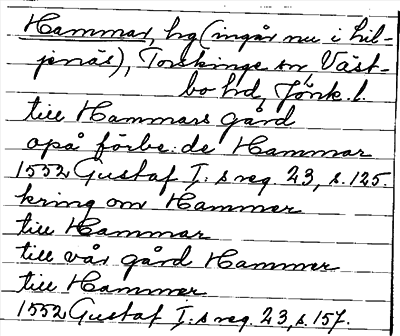 Hammar, hg (ingår nu i Lil-
jenäs), Torskinge sn Väst-
bo hd, Jönk. l.
till Hammars gård
opå förbe:de Hammar
1552 Gustaf I:s reg. 23, s. 125.
kring om Hammer
till Hammar
till vår gård Hammer
till Hammer
1552 Gustaf I:s reg. 23 s. 157.